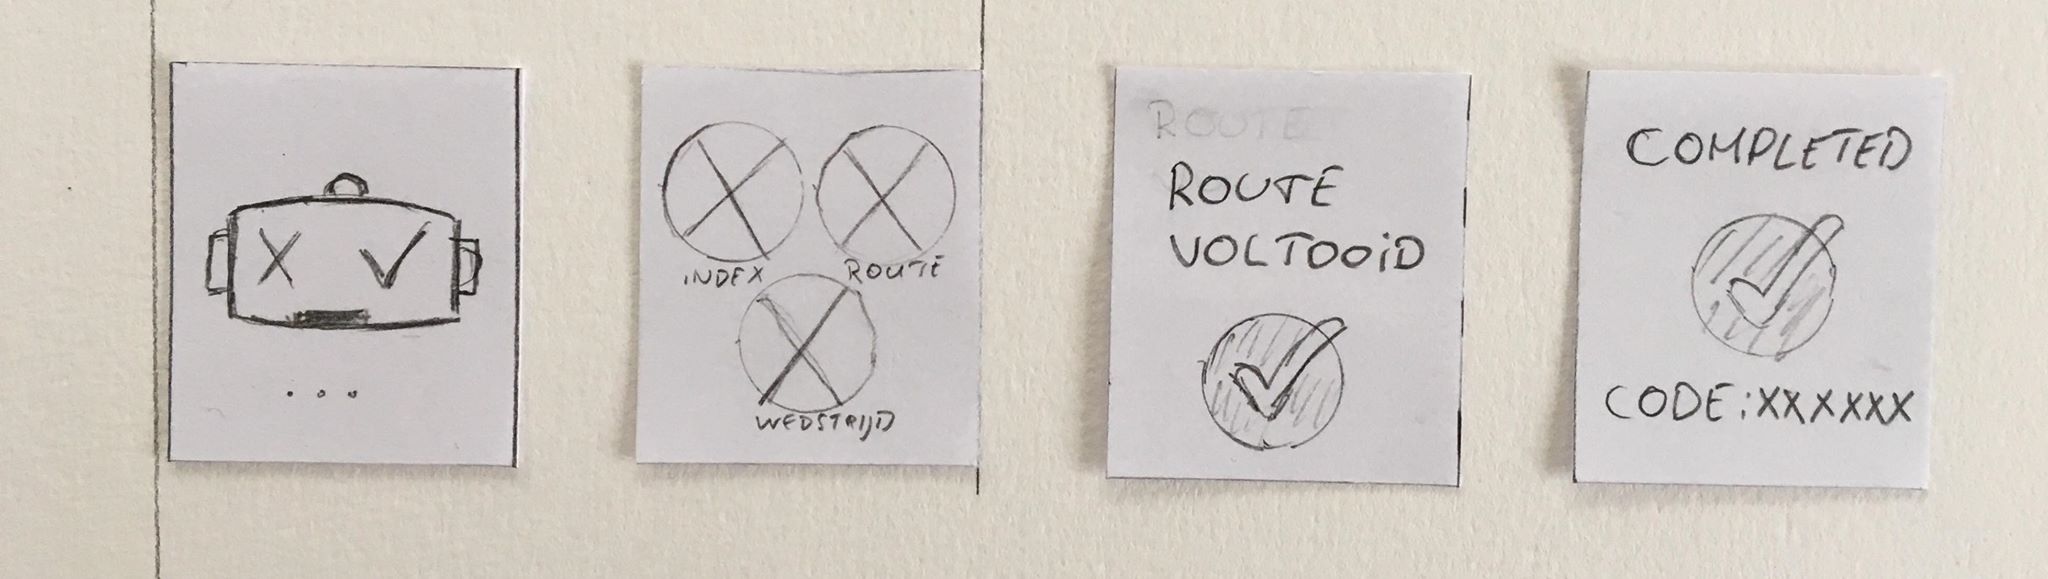 ...
INDEX
ROUTE
WEDSTRIJD
ROUTE
ROUTE
VOLTOOiD
COMPLETED
CODE:XXXXXX